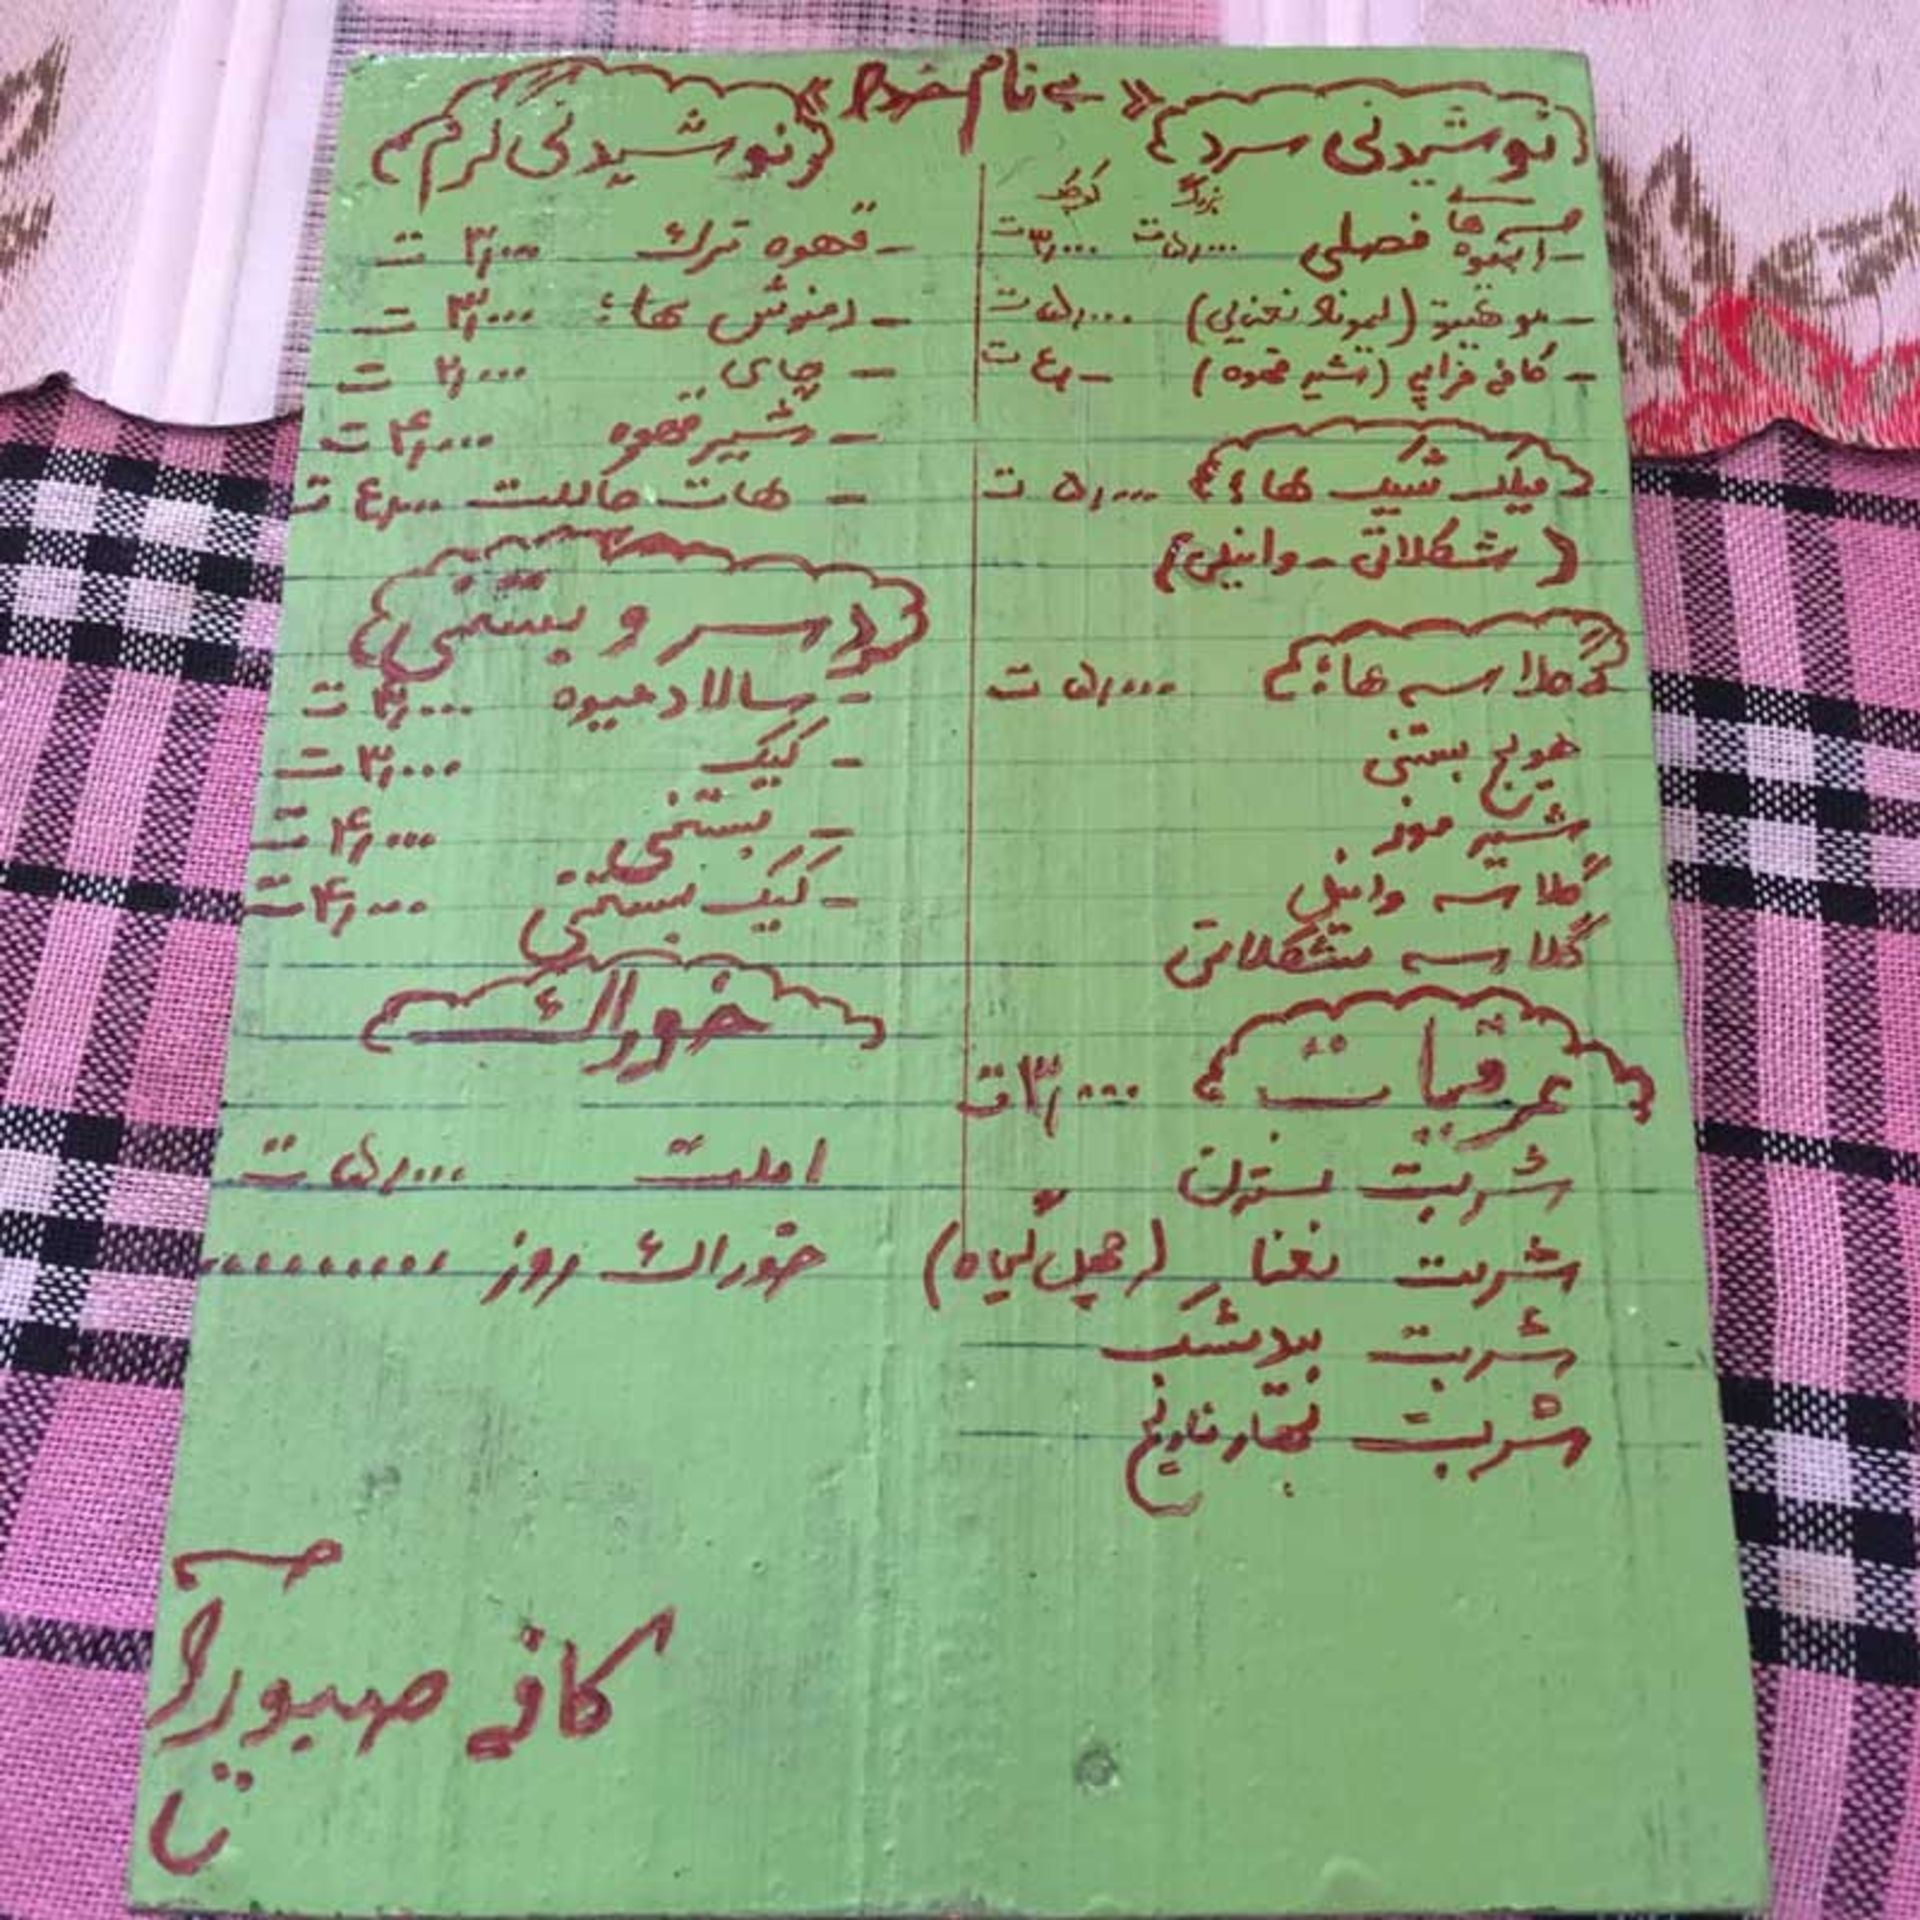 «به نام خدا»
نوشیدنی سرد
بزرگ کوچک
- آبمیوه ها فصلی ۵,۰۰۰ت ۳,۰۰۰ت
- موهیتو (لیموناد نعنایی) ۵,۰۰۰ت
- کافی فراپی (شیر قهوه) ۴,-ت
میلک شیک ها: ۵,۰۰۰ ت
(شکلاتی - وانیلی)
گلاسه ها: ۵,۰۰۰ ت
هویج بستنی
شیر موز
گلاسه وانیلی
گلاسه شکلاتی
عرقیات ۳,۰۰۰ت
شربت نسترن
شربت نعنا (چهل گیاه)
شربت بیدمشک
شربت بهار نارنج
نوشیدنی گرم
- قهوه ترک ۳,۰۰۰ ت
- دمنوش ها: ۳,۰۰۰ ت
- چای ۲,۰۰۰ ت
- شیر قهوه ۴,۰۰۰ ت
- هات چاکلت ۴,۰۰۰ ت
دسر و بستنی
- سالاد میوه ۴,۰۰۰ ت
- کیک ۳,۰۰۰ ت
- بستنی ۴,۰۰۰ ت
- کیک بستنی ۴,۰۰۰ ت
خوراک
املت ۵,۰۰۰ ت
خوراک روز ..........
کافی صبورآ